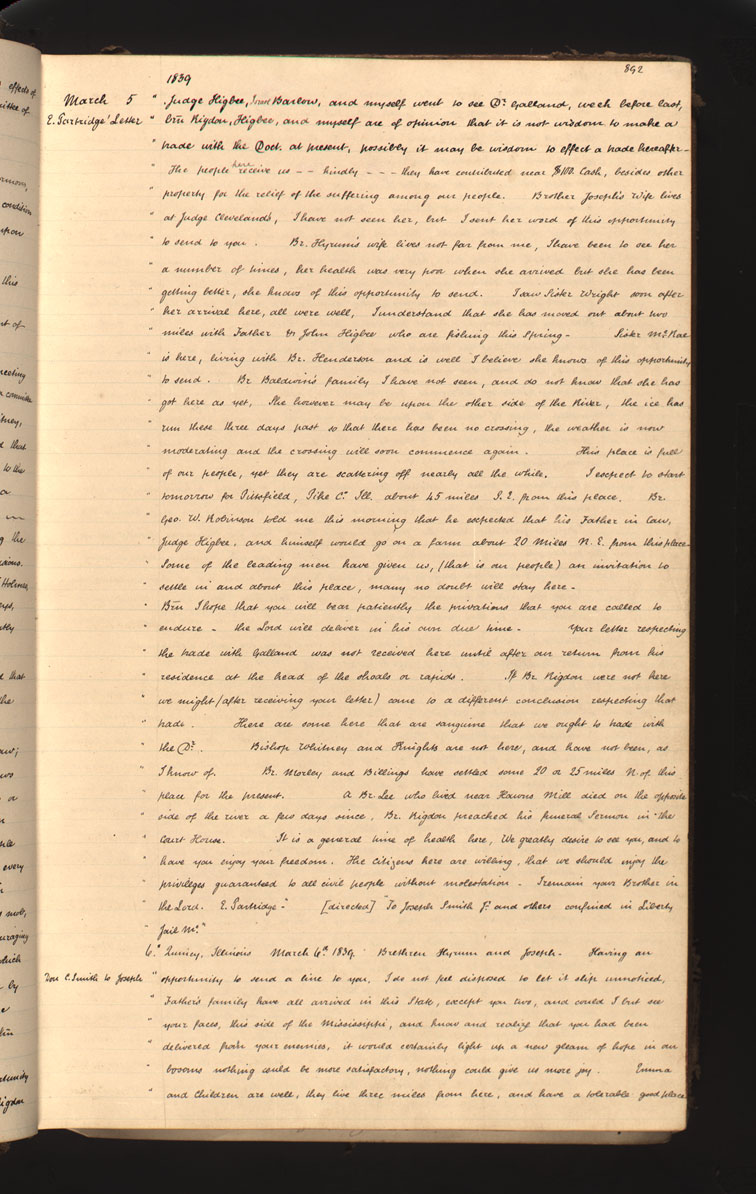 892
1839
March 5 " Judge Higbee, Israel Barlow, and myself went to see Dr. Galland, week before last,
E. Partridge's Letter " brn Rigdon, Higbee, and myself are of opinion that it is not wisdom to make a
" trade with the Doct. at present, possibly it may be wisdom to effect a trade hereafter–
" The people here receive us – – kindly – – – they have contributed near $100. Cash, besides other
" property for the relief of the suffering among our people. Brother Joseph's Wife lives
" at Judge Cleveland's, I have not seen her, but I sent her word of this opportunity
" to send to you. Br. Hyrum's wife lives not far from me, I have been to see her
" a number of times, her health was very poor when she arrived but she has been
" getting better, she knows of this opportunity to send. I saw Sister Wright soon after
" her arrival here, all were well, I understand that she has moved out about two
" miles with Father & John Higbee who are fishing this Spring– Sister McRae
" is here, living with Br. Henderson and is well I believe she knows of this opportunity
" to send. Br Baldwin's family I have not seen, and do not know that she has
" got here as yet, She however may be upon the other side of the River, the ice has
" run these three days past so that there has been no crossing, the weather is now
" moderating and the crossing will soon commence again. This place is full
" of our people, yet they are scattering off nearly all the while. I expect to start
" tomorrow for Pittsfield, Pike Co. Ill. about 45 miles S. E. from this place. Br.
" Geo. W. Robinson told me this morning that he expected that his Father in law,
" Judge Higbee, and himself would go on a farm about 20 Miles N. E. from this place–
" Some of the leading men have given us, (that is our people) an invitation to
" settle in and about this place, many no doubt will stay here–
" Brn I hope that you will bear patiently the privations that you are called to
" endure – the Lord will deliver in his own due time – Your letter respecting
" the trade with Galland was not received here until after our return from his
" residence at the head of the shoals or rapids. If Br. Rigdon were not here
" we might (after receiving your letter) come to a different conclusion respecting that
" trade. There are some here that are sanguine that we ought to trade with
" the Dr. Bishop Whitney and Knights are not here, and have not been, as
" I know of. Br. Morley and Billings have settled some 20 or 25 miles N. of this
" place for the present. A Br. Lee who lived near Hawns Mill died on the opposite
" side of the river a few days since, Br. Rigdon preached his funeral Sermon in the
" Court House. It is a general time of health here, We greatly desire to see you, and to
" have you enjoy your freedom. The Citizens here are willing, that we should enjoy the
" privileges guaranteed to all civil people without molestation – I remain your Brother in
" the Lord. E. Partridge–" [directed] "To Joseph Smith Jr. and others confined in Liberty
" Jail Mo."
6. " Quincy, Illinois March 6th. 1839. Brethren Hyrum and Joseph– Having an
Don C. Smith to Joseph " opportunity to send a line to you, I do not feel disposed to let it slip unnoticed,
" Father's family have all arrived in this State, except you two, and could I but see
" your faces, this side of the Mississippi, and know and realize that you had been
" delivered from your enemies, it would certainly light up a new gleam of hope in our
" bosoms nothing could be more satisfactory, nothing could give us more joy. Emma
" and Children are well, they live three miles from here, and have a tolerable good place